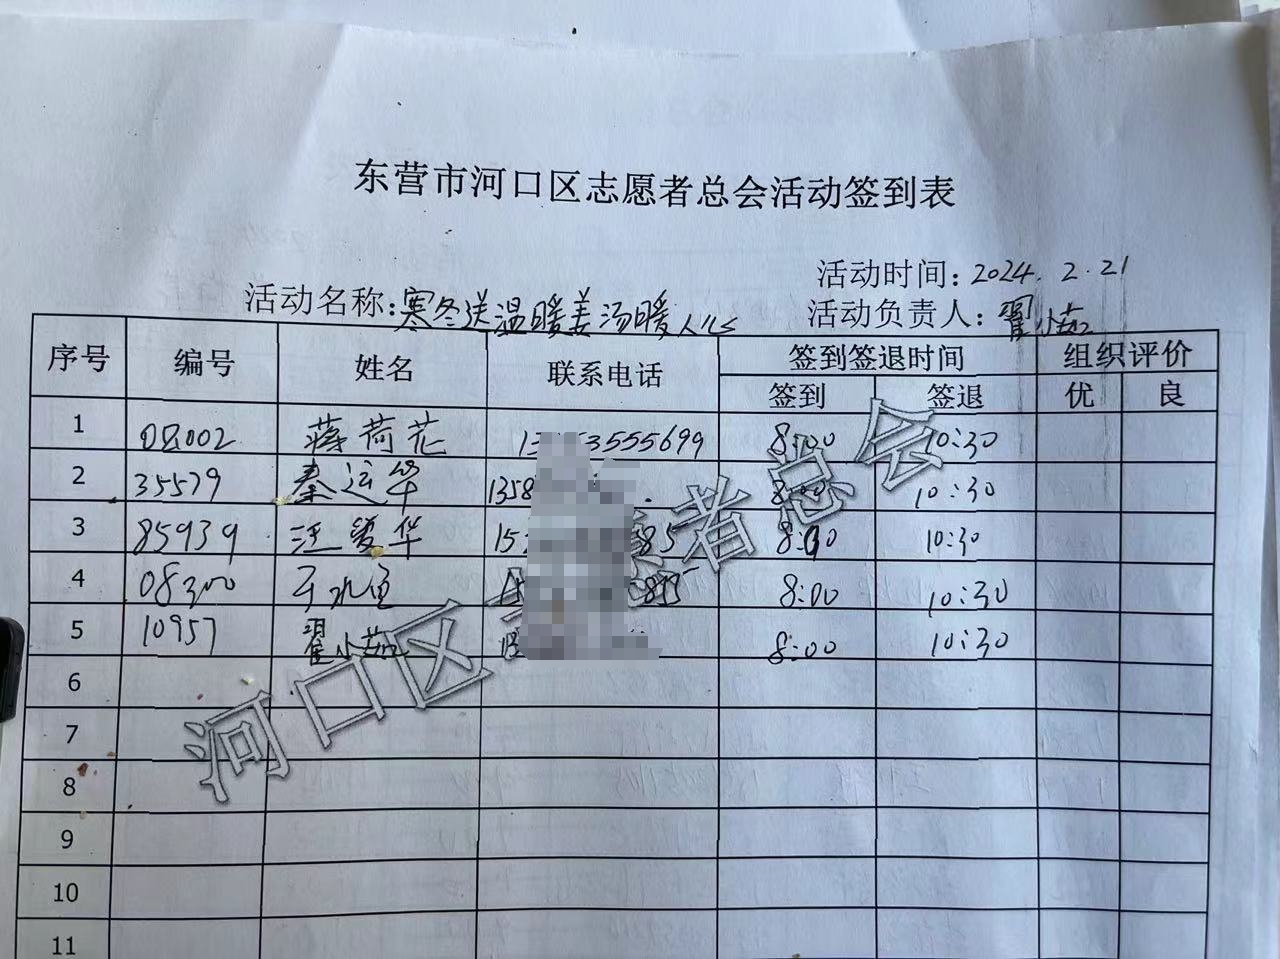 东营市河口区志愿者总会活动签到表
活动时间：2024.2.21
活动名称：寒冬送温暖姜汤暖人心
活动负责人：翟小茹
序号 编号 姓名 联系电话 签到签退时间 组织评价
签到 签退 优 良
1 荷花 8:00 10:30
2 35579 秦运华 1358 8:00 10:30
3 85939 汪爱华 15 85 8:00 10:30
4 08300 8:00 10:30
5 10957 翟小茹 8:00 10:30
6
7
8
9
10
11
河口区 者总会